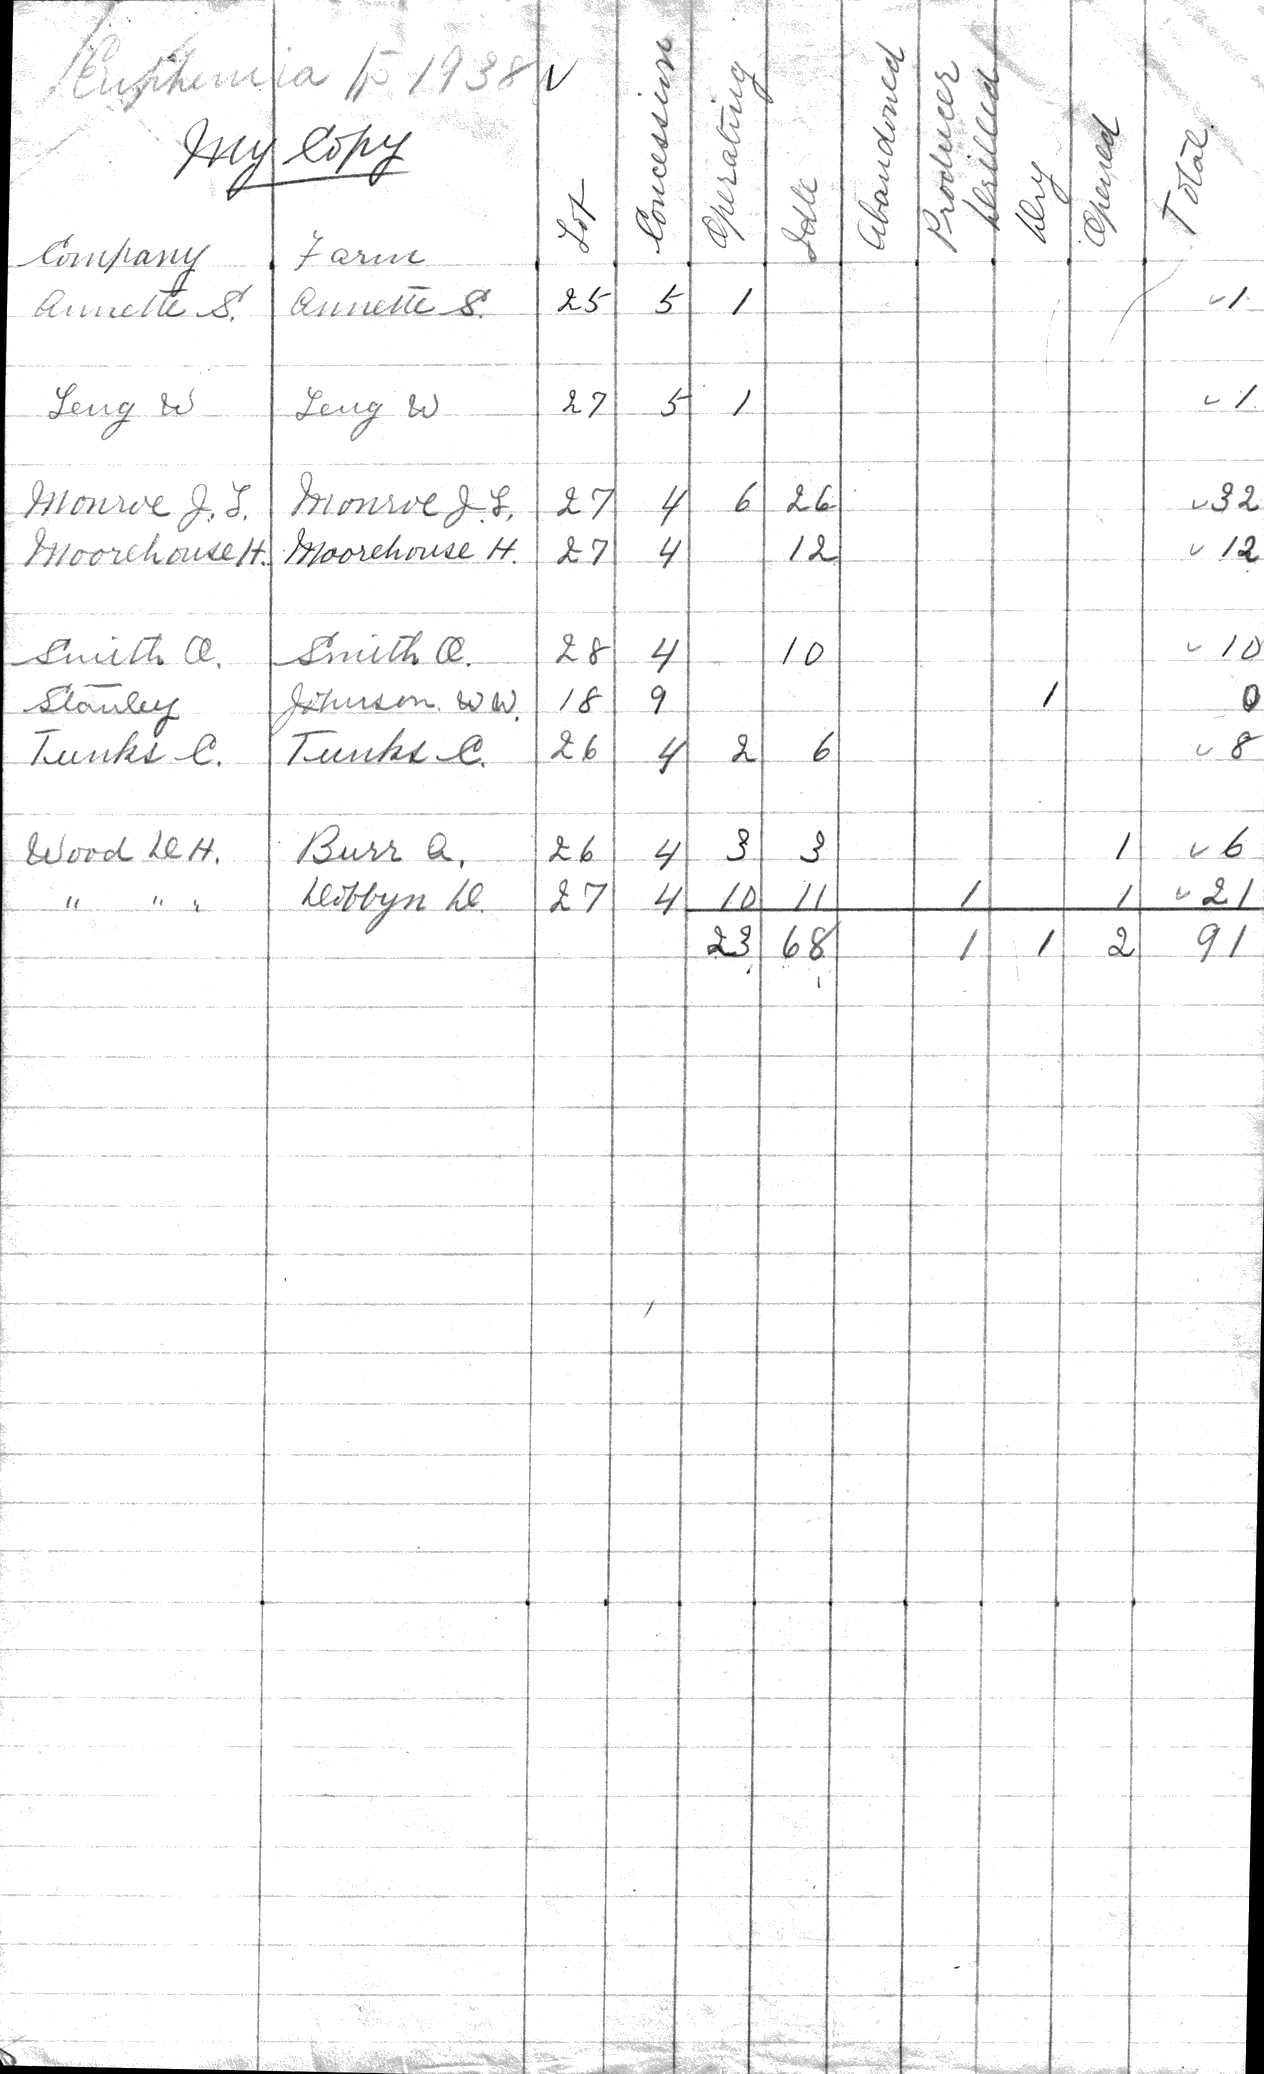 Euphemia Tp 1938 ✓
My Copy
Company Farm Lot Concession Operating Idle Abandoned Producer Drilled Dry Opened Total
Annette S. Annette S. 25 5 1 ✓1
Leng W Leng W 27 5 1 ✓1
Monroe J. L. Monroe J. L. 27 4 6 26 ✓32
Moorehouse H. Moorehouse H. 27 4 12 ✓12
Smith O. Smith O. 28 4 10 ✓10
Stanley Johnson W W. 18 9 1 0
Tunks C. Tunks C. 26 4 2 6 ✓8
Wood D H. Burr A. 26 4 3 3 1 ✓6
" " " Dobbyn D. 27 4 10 11 1 1 ✓21
23 68 1 1 2 91